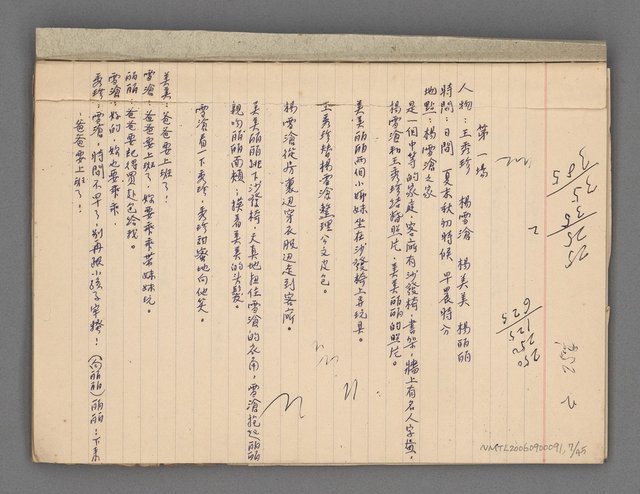 第一場
人物：王秀珍　楊雪滄　楊美美　楊丽丽
時間：日間　夏末秋初時候　早晨時分
地點：楊雪滄之家
是一個中等的家庭，客廳有沙發椅，書架，牆上有名人字畫，
楊雪滄和王秀珍結婚照片，美美丽丽的照片。
美美丽丽兩個小姊妹坐在沙發椅上弄玩具。
王秀珍替楊雪滄整理公文皮包。
楊雪滄從房裏边穿衣服边走到客廳。
美美丽丽跳下沙發椅，天真地扭住雪滄的衣角，雪滄抱起丽丽
親吻丽丽面頰；摸着美美的头髮。
雪滄看一下秀珍，秀珍甜蜜地向他笑。
美美：爸爸要上班了！
雪滄：爸爸要上班了，妳要乖乖帶妹妹玩。
丽丽：爸爸要記得買麵包給我。
雪滄：好的，妳也要乖乖。
秀珍：雪滄，時間不早了，別再跟小孩子窂擾！（向丽丽）丽丽：下來
，爸爸要上班了！
25
25
35
385
250
250
125
625
NMTL20060900091,7/45